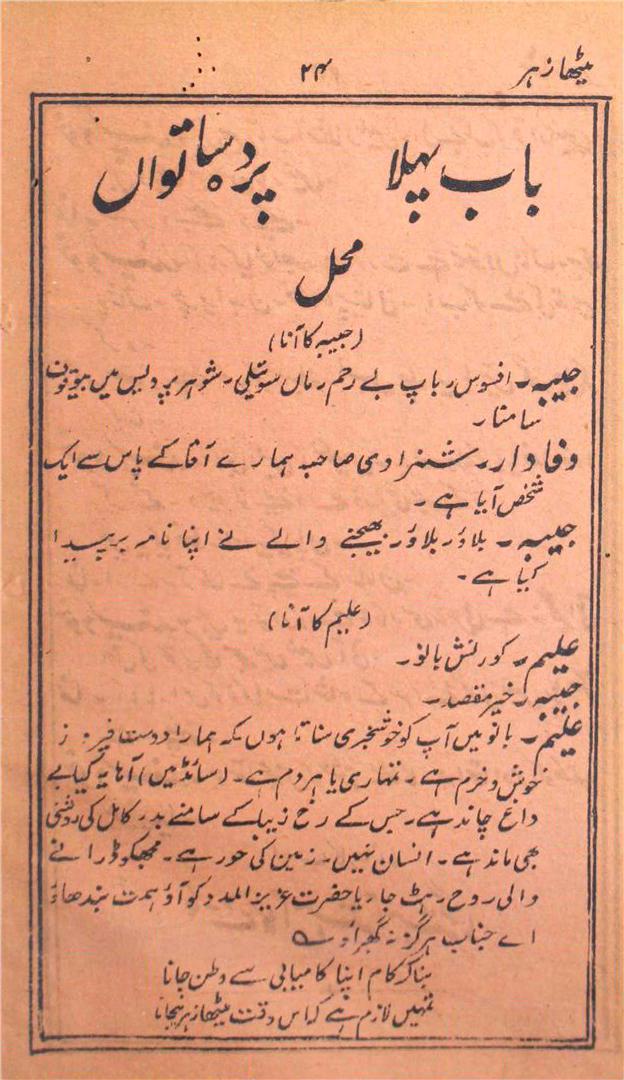 میٹھا زہر ۲۴
باب پہلا پردہ ساتواں
محل
(حبیبہ کا آنا)
حبیبہ۔ افسوس، باپ بے رحم، ماں سوتیلی، شوہر پردیس میں
سامنا۔
وفادار۔ شہزادی صاحبہ ہمارے آقا کے پاس سے ایک
شخص آیا ہے۔
حبیبہ۔ بلاؤ، بلاؤ، بھیجنے والے نے اپنا نامہ بر پیدا
کیا ہے۔
(علیم کا آنا)
علیم۔ کورنش بانو۔
حبیبہ۔ خیر مقصد۔
علیم۔ بانو میں آپ کو خوشخبری سناتا ہوں کہ ہمارا دوست فیروز
خوش و خرم ہے۔ تمہاری یاہر دم ہے۔ (سائڈ میں) آہا یہ کیا بے
داغ چاند ہے۔ جس کے رخ زیبا کے سامنے بدر کامل کی روشنی
بھی ماند ہے۔ انسان نہیں۔ زمین کی حور ہے۔ مجھکو ڈرانے
والی روح ہٹ جا، یا حضرت عزیز المدد کو آؤ ہمت بندھاؤ
اے جناب ہرگز نہ گھبراؤ ؎
بنا کر کام اپنا کامیابی سے وطن جانا
تمہیں لازم ہے کہ اس وقت میٹھا زہر